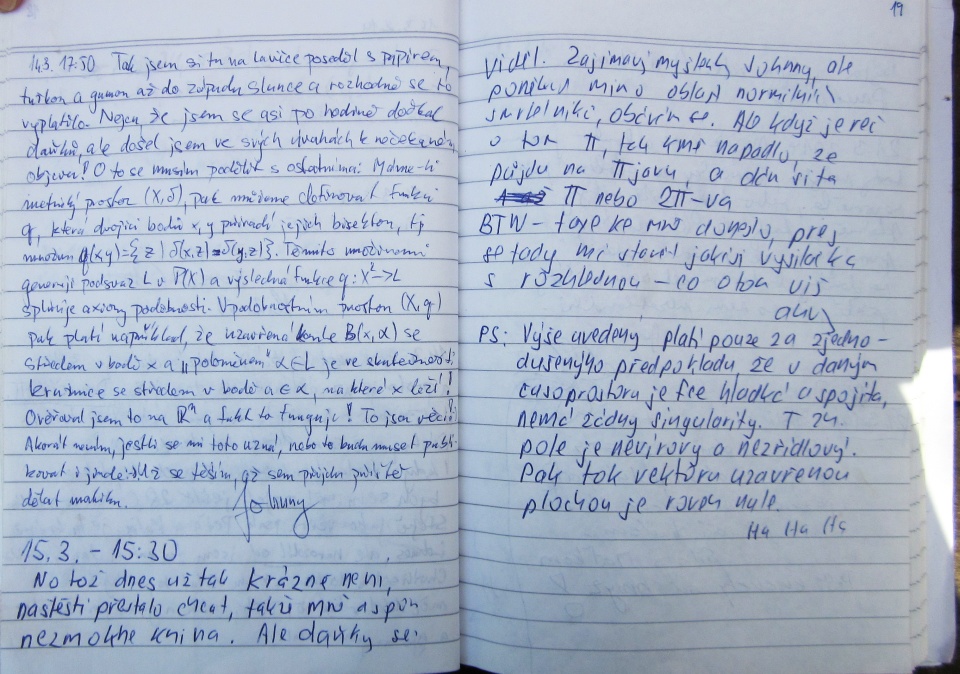 14.3. 17:50 Tak jsem si tu na lavičce poseděl s papírem,
tužkou a gumou až do západu slunce a rozhodně se to
vyplatilo. Nejen, že jsem se asi po hodině dočkal
daňků, ale došel jsem ve svých úvahách k nečekanému
objevu! O to se musím podělit s ostatními: Máme-li
metrický prostor (X,δ), pak můžeme definovat funkci
q, která dvojici bodů x,y přiřadí jejich bisektor, tj
množinu q(x,y)={z | δ(x,z)=δ(y,z)}. Těmito množinami
generuji podsvaz L v P(X) a výsledná funkce q: X²→L
splňuje axiomy podobnosti. V podobnostním prostoru (X,q)
pak platí například, že uzavřená koule B(x,α) se
středem v bodě x a „poloměrem" α∈L je ve skutečnosti
kružnice se středem v bodě a∈α, na které x leží!
Ověřoval jsem to na ℝⁿ a fakt to funguje! To jsou věci!
Akorát nevím, jestli se mi toto uzná, nebo to budu muset publi-
kovat i jinde. Už se těším, až sem přijdu příště
dělat matiku.
Johnny
15.3. - 15:30
No tož dnes už tak krázně neni,
naštěstí přestalo chcat, takže mně aspoň
nezmokne kniha. Ale daňky se
19
viděl. Zajímavý myšlenky Johnny, ale
poněkud mimo oblast normálních
smrtelníků, obávám se. Ale když je řeč
o tom π, tak mně napadlo, že
půjdu na πjavu, a dám si ta
π nebo 2π-va
BTW - taxe ke mně doneslo, prej
se tady má stavit jakási vysílačka
s rozhlednou - co otom víš
ahoj
PS: Výše uvedený platí pouze za zjedno-
dušenýho předpokladu že v daným
časoprostoru je fce hladká a spojitá,
nemá žádny singularity. T zn.
pole je nevírový a nezřídlový.
Pak tok vektoru uzavřenou
plochou je roven nule.
Ha Ha Ha